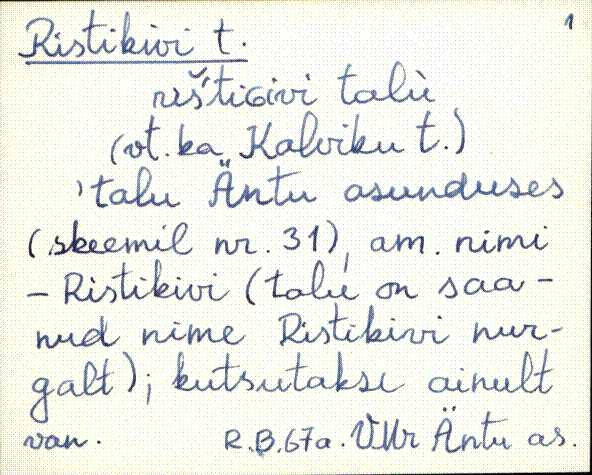 1
Ristikivi t.
rišticivi talù
(vt. ka Kalviku t.)
'talu Äntu asunduses
(skeemil nr. 31), am. nimi
- Ristikivi (talu on saa-
nud nime Ristikivi nur-
galt); kutsutakse ainult
van. R.B.67a. VMr Äntu as.